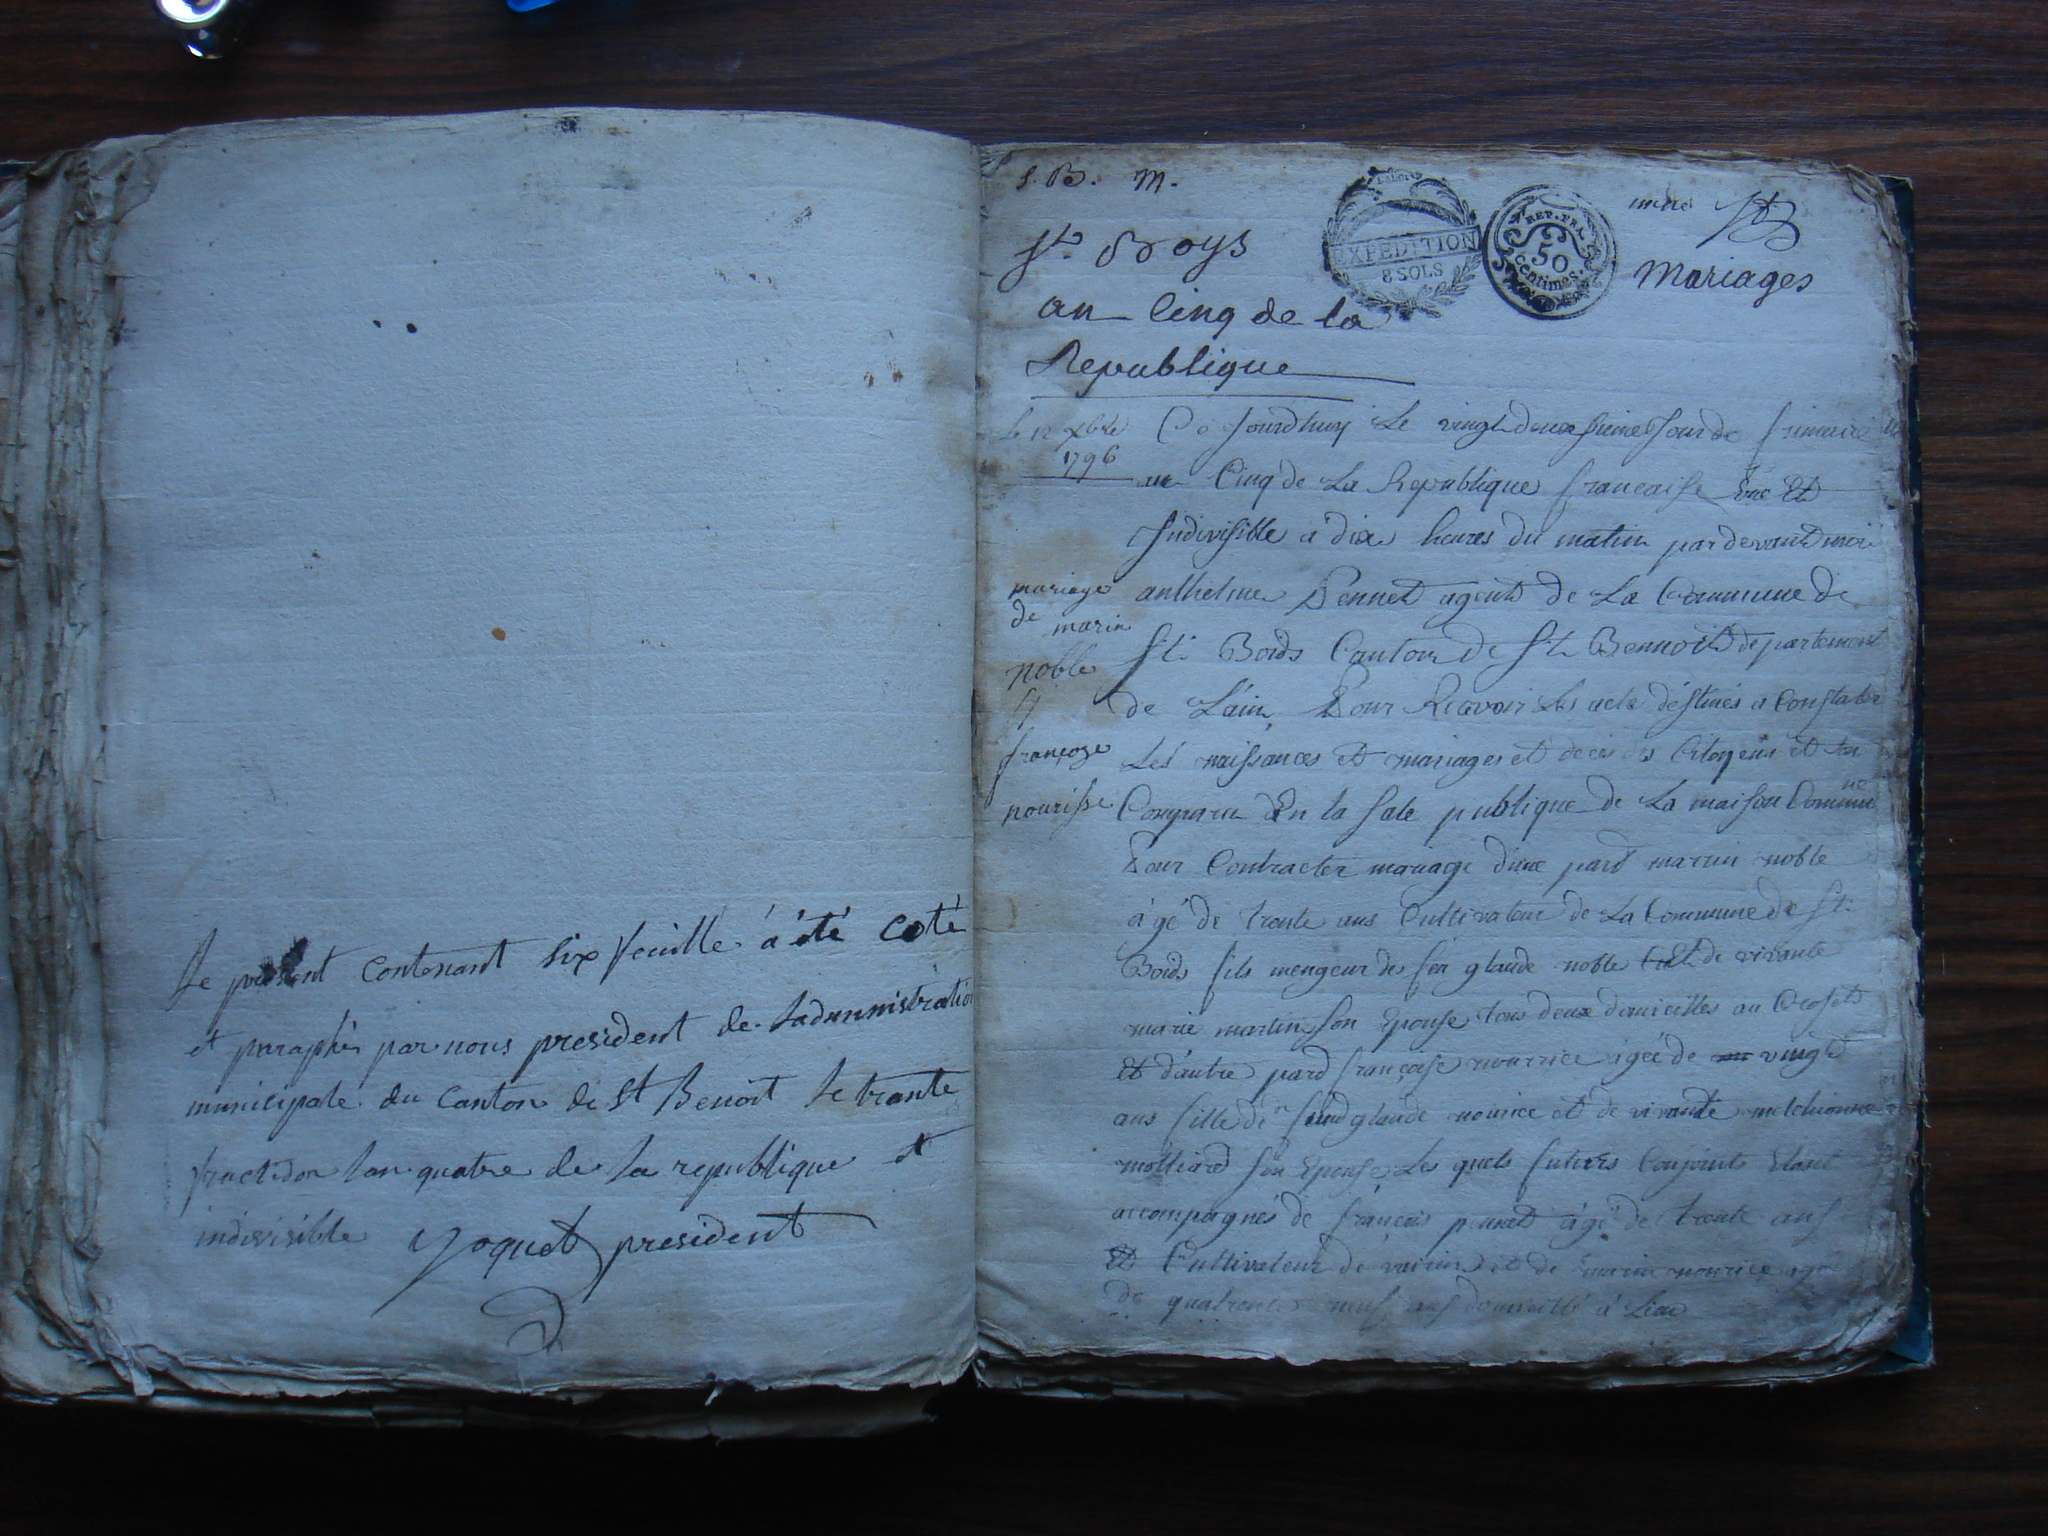 Le présent contenant six feuille à été coté
et paraphé par nous president de Ladministration
municipale du canton de St Benoit le trante
fructidor lan quatre de la republique et
indivisible yoquet president
S. B. M.
St. Boys
an Cinq de la
Republique
EXPEDITION
8 SOLS
REP. FRA
50
centimes.
Mariages
le 12 Xbre
1796
mariage
de marin
noble
et
françoze
nourisse
Ce Jourdhuy Le vingt deuxsieme Jour de frimaire
an Cinq de La Republique française une Et
Indivisible a dix heures du matin par devant moi
anthelme Pennet agent de La Commune de
St. Boids Canton de St. Bennoit departement
de Lain Pour Recevoir Les acte déstinés a Constater
Les naissances et mariages et deces des Citoyens et
Comparu En la sale publique de La maison Commune
Pour Contracter mariage d'une pard marin noble
âgé de trente ans Cultivateur de La Commune de St.
Boids fils mengeur de feu glaude noble et de vivante
marie martin son Epouse tous deux domicilles au Croset
Et d'autre pard françoise nourrice âgéé de vingt
ans fille de feu glaude nourice et de vivante melchionne
molliard son Epouse, Les quels futurs Conjoints Etant
accompagnés de françois pennet âgé de trente ans
Cultivateur de et de marin nourice agé
de quatrente neuf ans domicillé à Lieu